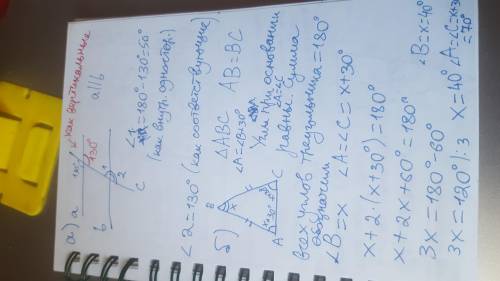 а) a как вертикальные
130°
130°
1
2
b
c
a||b
∠1 = 180° - 130° = 50°
(как внутр. одностор.)
∠2 = 130° (как соответствующие).
б)
B
x
x+30°
A
C
△ABC AB = BC
∠A = ∠B + 30°
Углы при основании
равны ∠A=∠C Сумма
всех углов треугольника = 180°
обозначим
∠B = x ∠A = ∠C = x + 30°
x + 2·(x + 30°) = 180°
x + 2x + 60° = 180°
3x = 180° - 60°
3x = 120° | :3 x = 40°
∠B = x = 40°
∠A = ∠C = x + 30°
= 70°